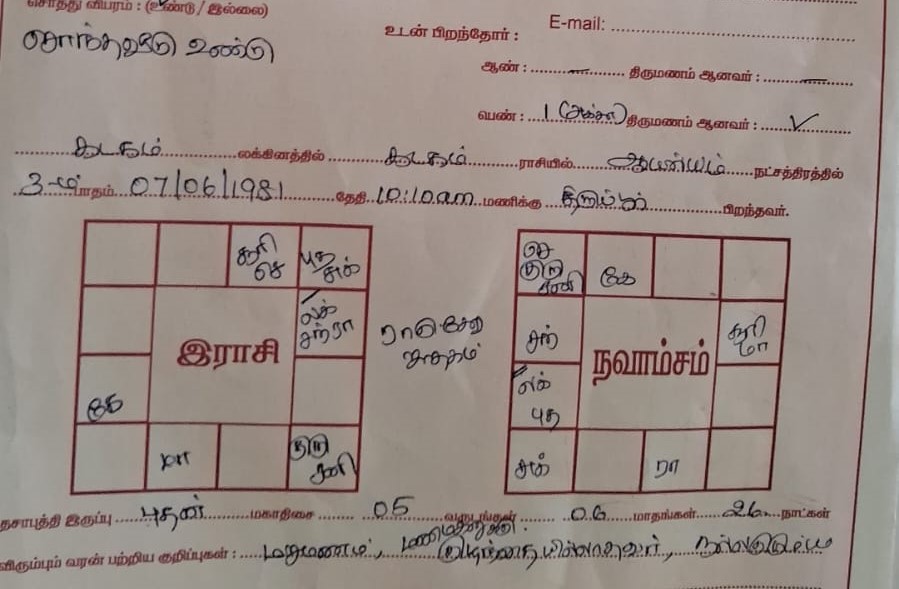 சொத்து விபரம் : (உண்டு / இல்லை)
சொந்தவீடு உண்டு
E-mail:
உடன் பிறந்தோர் :
ஆண் : — திருமணம் ஆனவர் : —
பெண் : 1 (அக்கா) திருமணம் ஆனவர் : ✓
கடகம் லக்கினத்தில் கடகம் ராசியில் ஆயில்யம் நட்சத்திரத்தில்
3-ம் பாதம் 07/06/1981 தேதி 10:10am மணிக்கு பிறந்தவர்.
சூரி செ
புத சுக்
லக் சந்ரா
இராசி
கே
மா
குரு சனி
ராகு கேது ஜாதகம்
செ குரு சனி
கே
சந்
சூரி மா
நவாம்சம்
லக் புத
சுக்
ரா
தசாபுத்தி இருப்பு புதன் மகாதிசை 05 வருடங்கள் 06 மாதங்கள் 26 நாட்கள்
விரும்பும் வரன் பற்றிய குறிப்புகள் : மறுமணம், குழந்தையில்லாதவர்,